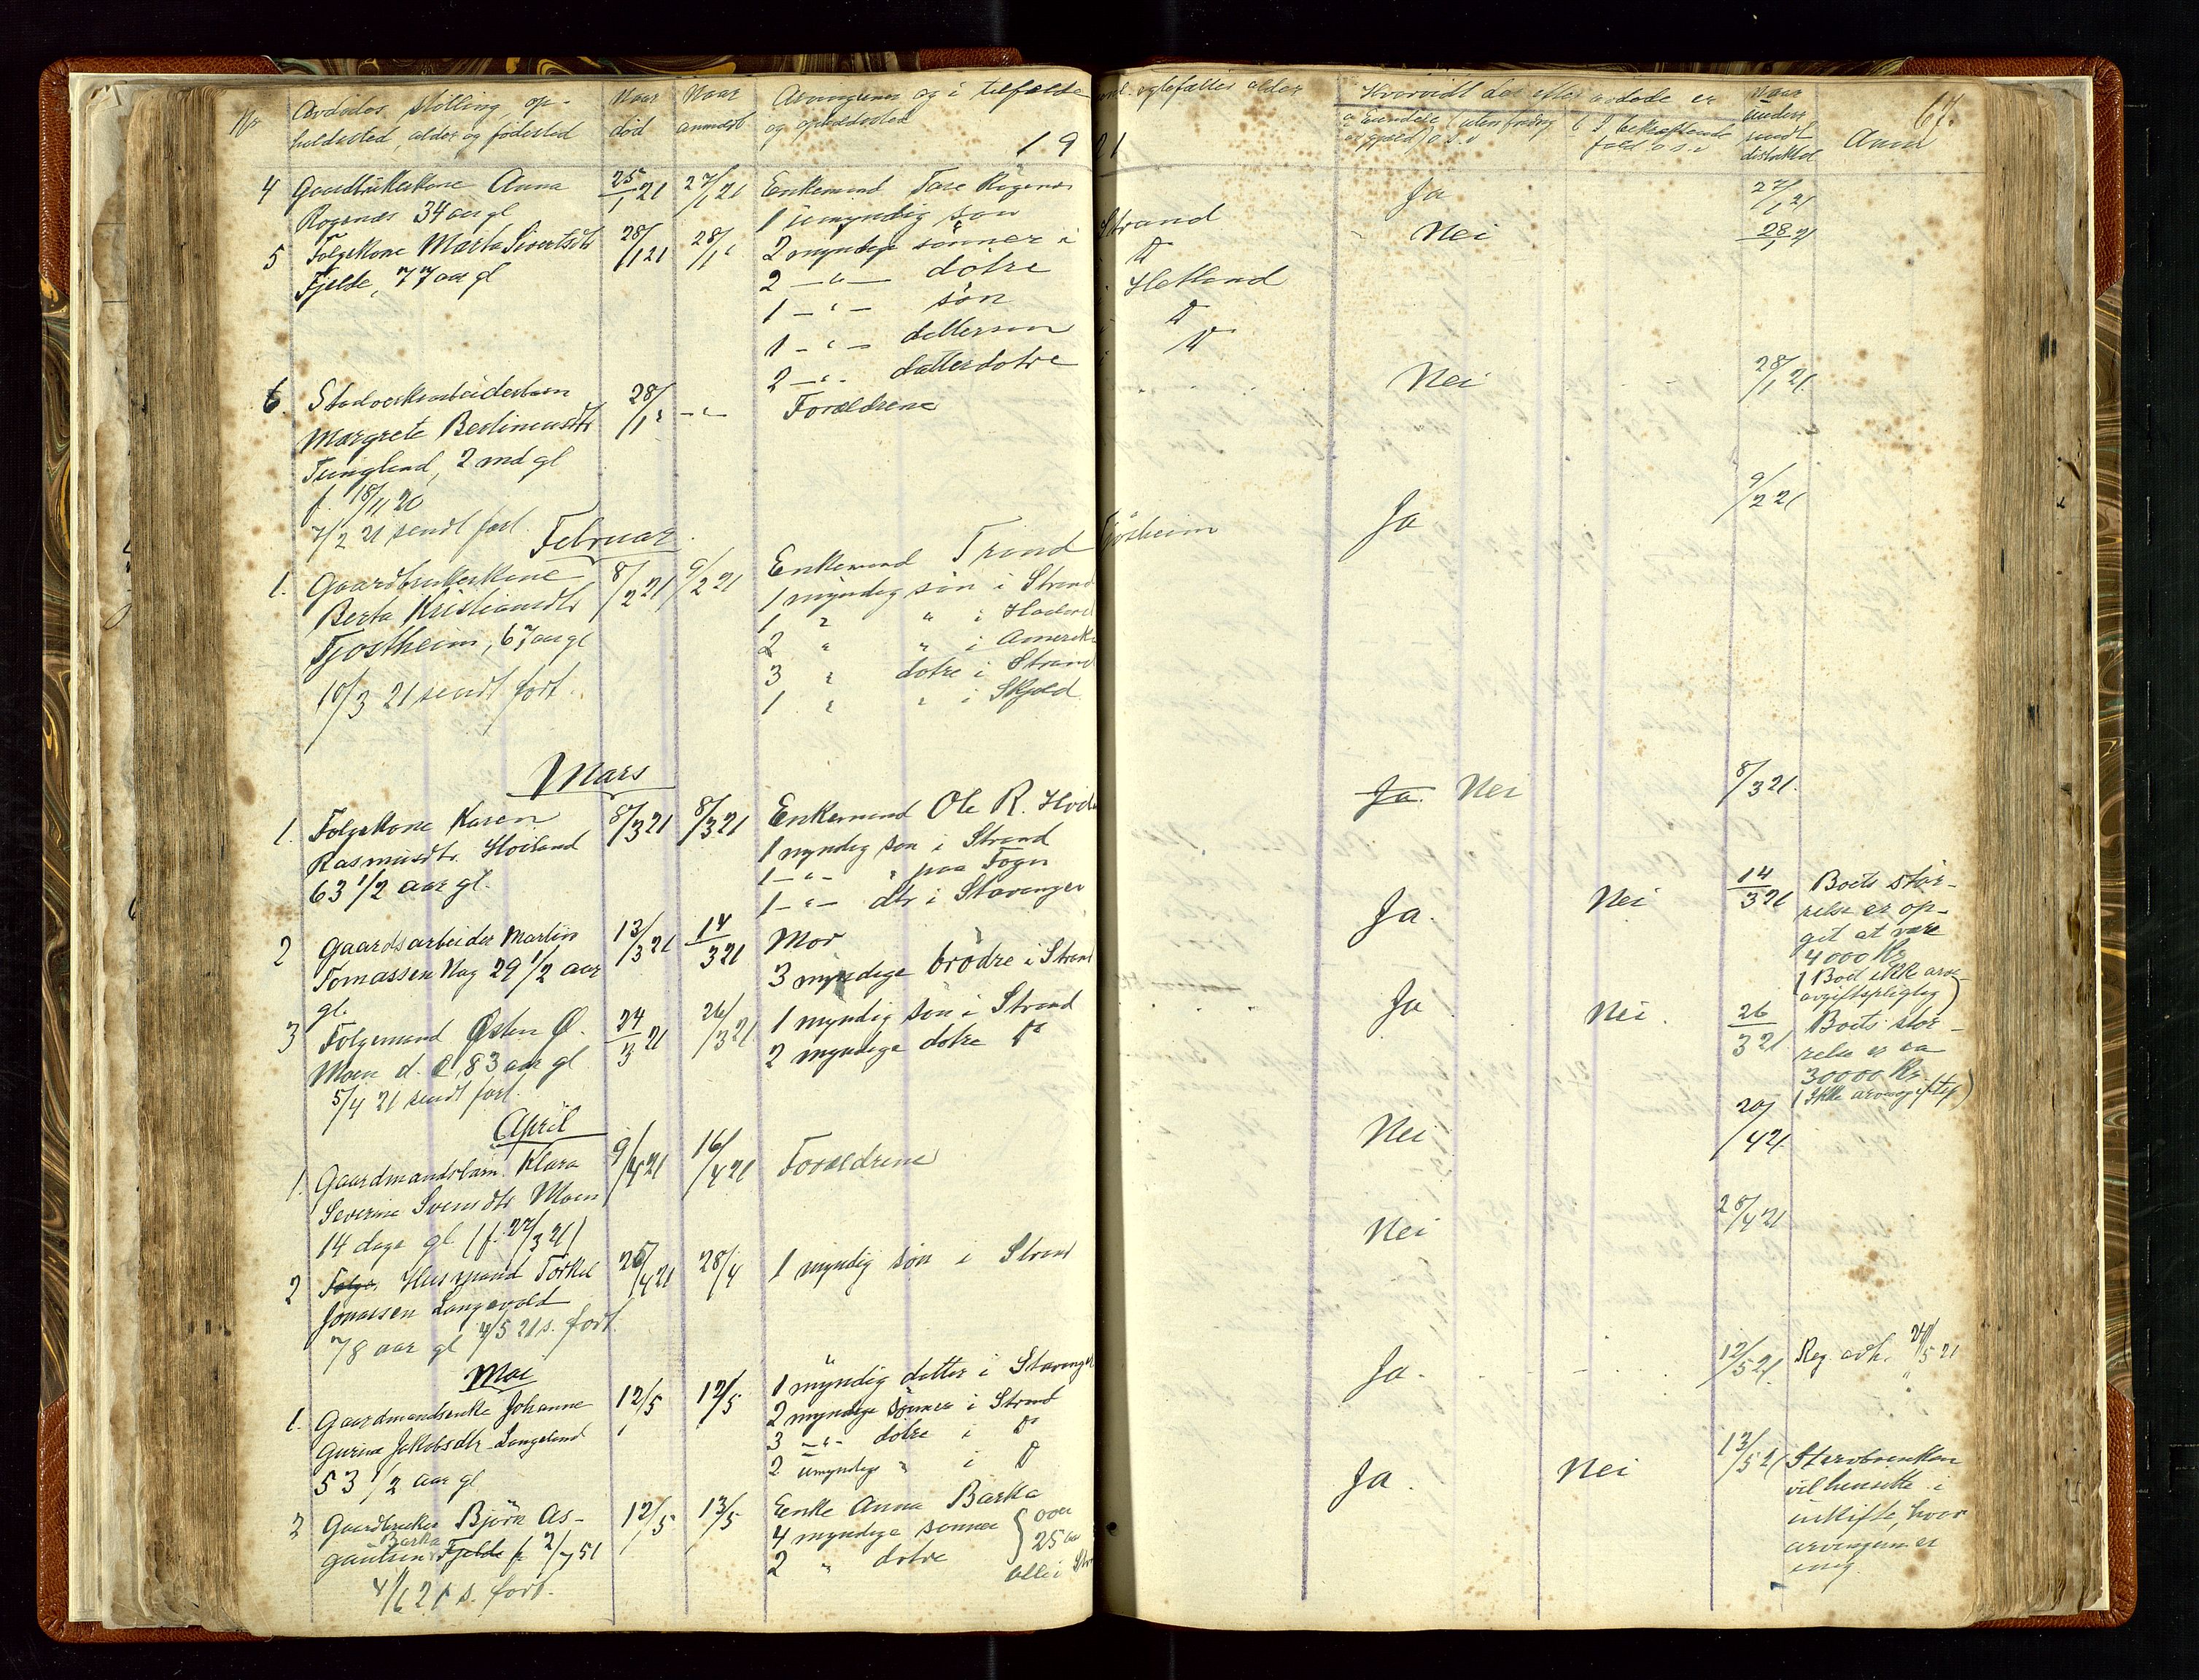 Nr Avdødes stilling, op- Naar Naar Arvingerne og i tilfælde egtefælles alder Hvorvidt der efter avdøde er Naar 67.
holdssted, alder og fødested død anmeldt og opholdssted indber. Anm
1921
4 Gaardbrukerkone Anna 25/1 21 27/1 21 Enkemand Tore Røgenes Ja 27/1 21
Røgenes 34 aar gl 1 umyndig søn
5 Følgekone Marta Sivertsdtr 28/1 21 28/1 " 2 myndige sønner i Strand Nei 28/1 21
Fjelde, 77 aar gl 2 —"— døtre
1 —"— søn i Hetland
1 —"— dattersøn
2 —"— datterdøtre
6. Margrete Bertineusdtr 28/1 " —"— Forældrene Nei 28/1 21
Tungland, 2 md gl
f. 18/11 20
7/2 21 sendt fort.
Februar
1. Gaardbrukerkone 8/2 21 9/2 21 Enkemand Trond Tjøstheim Ja 9/2 21
Berta Kristiansdtr 1 myndig søn i Strand
Tjøstheim, 67 aar gl 1 " " i
2 " " i Amerika
3 " døtre i Strand
10/3 21 sendt fort. 1 " " i Skjold
Mars
1. Følgekone Karen 8/3 21 8/3 21 Enkemand Ole R. Ja. Nei 8/3 21.
Rasmusdtr. Høiland 1 myndig søn i Strand
63 1/2 aar gl. 1 —"— " paa Fogn
1 —"— dtr i Stavanger
2 Gaardsarbeider Martin 13/3 21 14/3 21 Mor Ja. Nei 14/3 21 Boets stør-
Tomassen Nag 29 1/2 aar 3 myndige brødre i Strand relse er op-
gl. git at være
4000 Kr
(Boet ikke arve-
avgiftspligtig)
3 Følgemand Østen Ø. 24/3 21 26/3 21. 1 myndig søn i Strand Ja Nei. 26/3 21 Boets stør-
Moen 83 aar gl 2 myndige døtre relse er ca
5/4 21 sendt fort. 30000 Kr.
April
1. Gaardmandsbarn Klara 9/4 21 16/4 21 Forældrene Nei 20/4 21
Severine Svensdtr Moen
14 dage gl (f. 27/3 21)
2 Følge. Husmand Torkel 26/4 21 28/4 1 myndig søn i Strand Nei 28/4 21
Jonassen Langevold
78 aar gl 4/5 21 s. fort.
Mai
1. Gaardmandsenke Johanne 12/5 12/5 1 myndig datter i Stavanger Ja. 12/5 21 Reg. avh. 24/5 21
Gurine Jakobsdtr Langeland 2 myndige sønner i Strand
53 1/2 aar gl 3 —"— døtre i
2 umyndige " i
2 Gaardbruker Bjørn As- 12/5 13/5 Enke Anna Barka Ja. Nei 13/5 21
gautsen Barka Fjelde f. 2/7 51 4 myndige sønner over vil hensitte i
4/6 21 s. fort. 2 " døtre 25 aar uskifte, hvor
alle i Strand arvingerne er
enig.